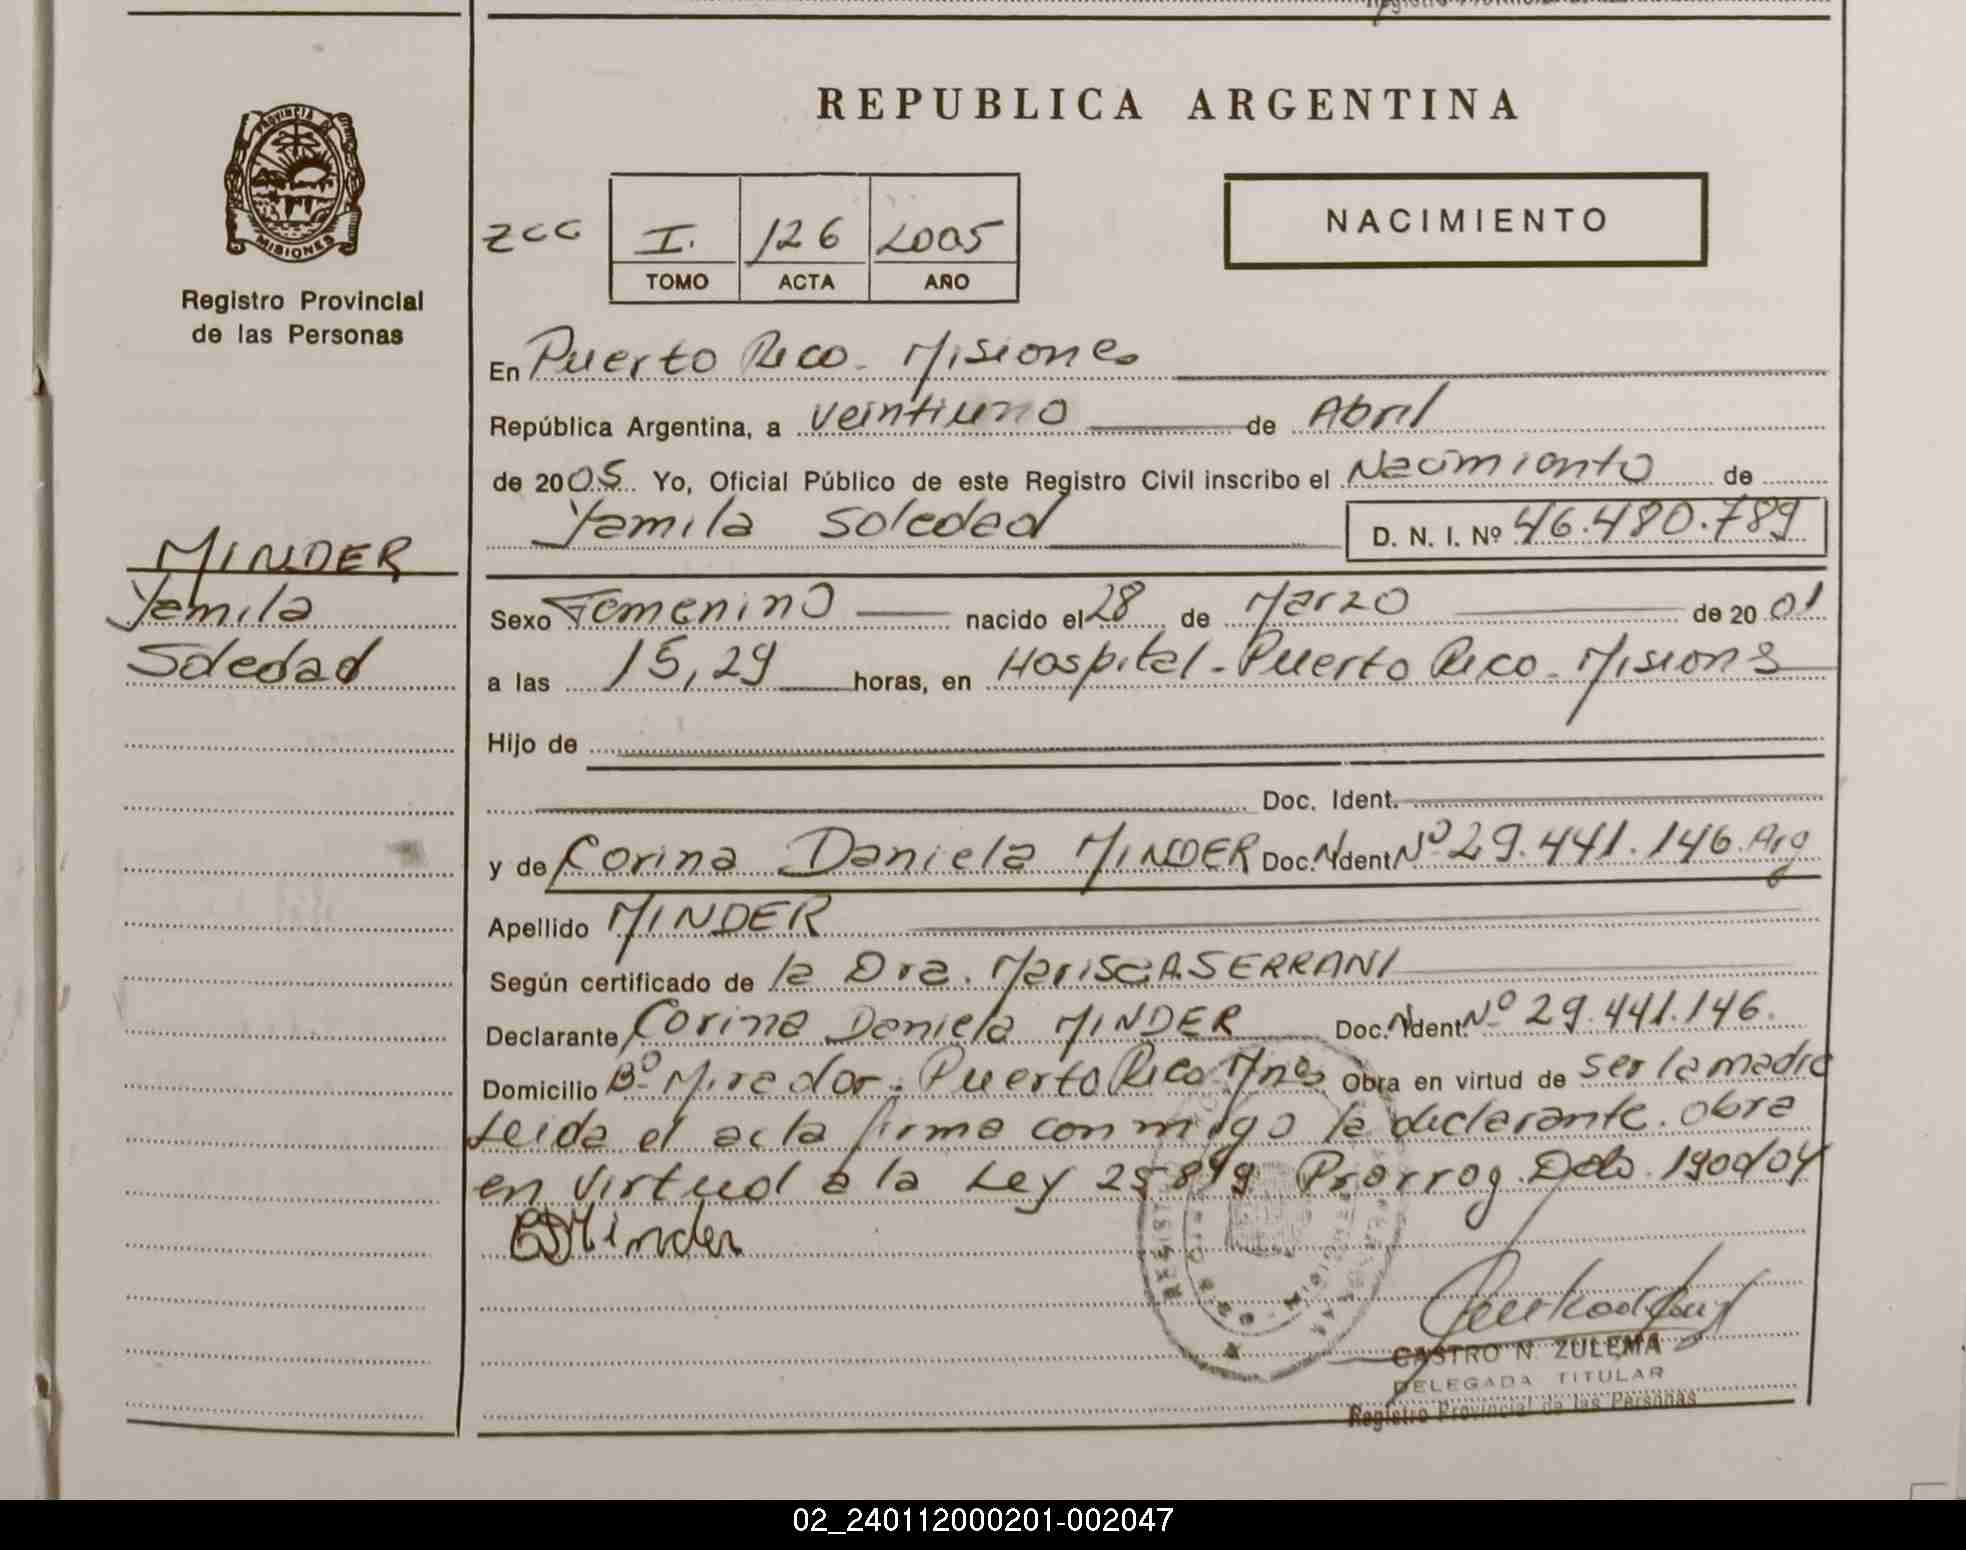 REPUBLICA ARGENTINA
PROVINCIA DE
MISIONES
Registro Provincial
de las Personas
zcc I. 126 2005
TOMO ACTA AÑO
NACIMIENTO
En Puerto Rico. Misiones
República Argentina, a veintiuno de Abril
de 2005 Yo, Oficial Público de este Registro Civil inscribo el Nacimiento de
Yamila Soledad D. N. I. Nº 46.480.789
MINDER
Yamila
Soledad
Sexo Femenino nacido el 28 de Marzo de 2001
a las 15,29 horas, en Hospital - Puerto Rico. Misiones
Hijo de
Doc. Ident.
y de Corina Daniela MINDER Doc. Ident. Nº 29.441.146. Arg
Apellido MINDER
Según certificado de la Dra. Marisa A. SERRANI
Declarante Corina Daniela MINDER Doc. Ident. Nº 29.441.146.
Domicilio Bº Mirador. Puerto Rico Mnes Obra en virtud de ser la madre
Leida el acta firma conmigo la declarante. obra
en virtud a la Ley 25819 Prorrog. Dcto. 1900/04
CDMinder
CASTRO N. ZULEMA
DELEGADA TITULAR
Registro Provincial de las Personas
02_240112000201-002047